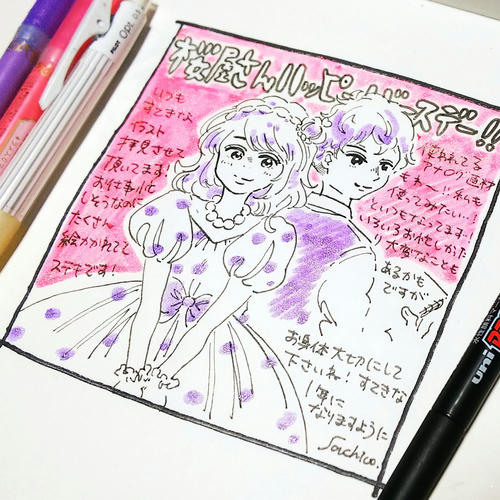 桜屋さんハッピーバースデー!!
いつも
すてきな
イラスト
拝見させて
頂いてます!
お仕事忙
しそうなのに
たくさん
絵かかれてて
ステキです!
使われてる
アナログ画材
もわ〜!!私も
使ってみたい…!
といつもなってます!
いろいろお忙しかったり
大変なことも
あるかも
ですが
お身体大切にして
下さいね!すてきな
1年に
なりますように
Sachico.
PILOT Opt. 0.5
uni